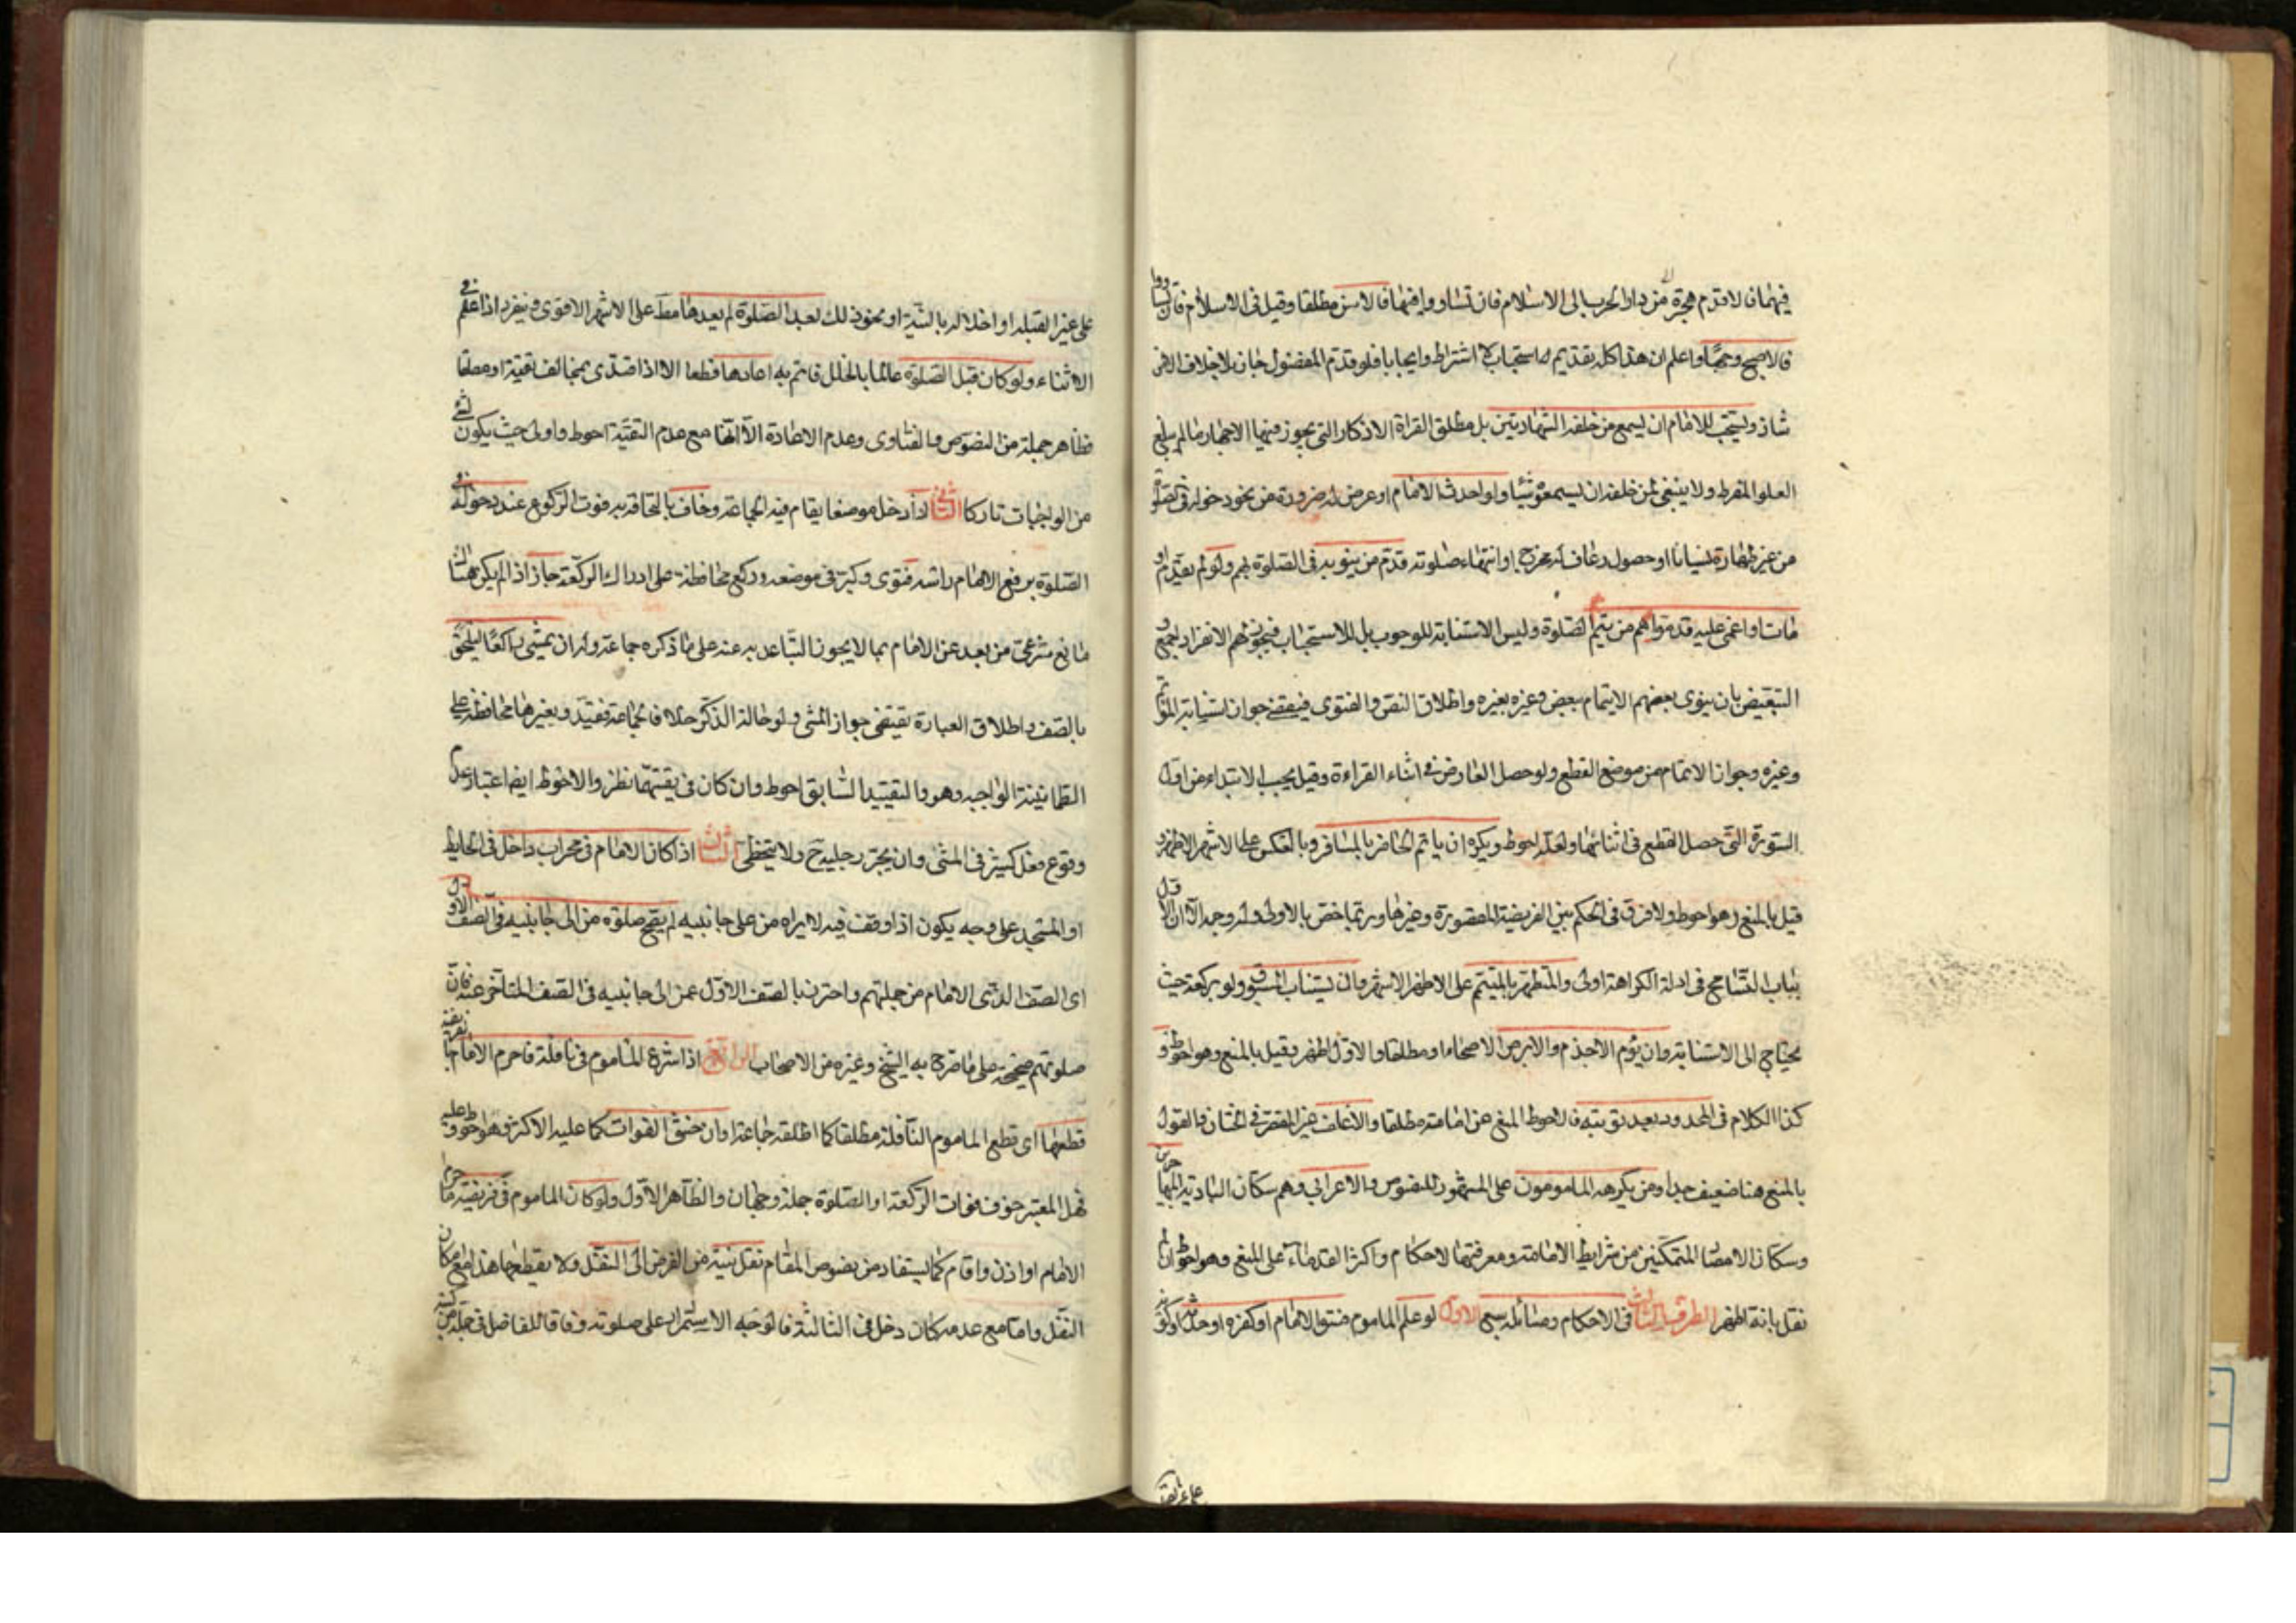 فيهما فالاقدم هجرة من دار الحرب الى الاسلام فان تساووا فيهما فالاسن مطلقا وقيل فى الاسلام فان تساووا
فالاصبح وجها واعلم ان هذا كله تقديم استحباب لا اشتراط وايجاب فلو قدم المفضول جاز بلا خلاف الا من
شاذ ويستحب للامام ان يسمع من خلفه الشهادتين بل مطلق القراة الاذكار التى يجوز فيها الاجهار ما لم يبلغ
العلو المفرط ولا ينبغى لمن خلفه ان يسمعوه شيئا ولو احدث الامام او عرض له ضرورة من نحو دخوله فى الصلوة
من غير طهارة نسيانا او حصول رعاف له مخرج او انتهاء صلوته قدم من ينوبه فى الصلوة بهم ولو لم يقدم او
مات او اغمى عليه قدموا هم من يتم الصلوة وليس الاستنابة للوجوب بل للاستحباب فيجوز لهم الانفراد اجمع و
التبعيض بان ينوى بعضهم الايتمام ببعض وغيره بغيره واطلاق النص والفتوى فيقتضى جواز استنابة المؤتم
وغيره وجواز الاتمام من موضع القطع ولو حصل العارض فى اثناء القراءة وقيل يجب الابتداء من اول
السورة التى حصل القطع فى اثنائها ولعله احوط ويكره ان ياتم الحاضر بالمسافر وبالعكس على الاشهر الاظهر و
قيل بالمنع وهو احوط ولا فرق فى الحكم بين الفريضة المقصورة وغيرها وربما خص بالاولى وله وجه الا ان الاول
بباب التسامح فى ادلة الكراهة اولى والمتطهر بالمتيمم على الاظهر الاشهر وان يستناب المسبوق ولو بركعة حيث
يحتاج الى الاستنابة وان يؤم الاجذم والابرص الاصحاء او مطلقا والاول اظهر وقيل بالمنع وهو احوط و
كذا الكلام فى المحدود بعد توبته فالاحوط المنع عن امامته مطلقا والاغلف غير المقصر فى الختان فالقول
بالمنع هنا ضعيف جدا ومن يكرهه المامومون على المشهور للنصوص والاعرابى وهم سكان البادية المهاجرين
وسكان الامصار المتمكنين من شرايط الامامة ومعرفتها لاحكام واكثر القدماء على المنع وهو احوط ان لم
نقل بانه اظهر الطرف الثالث فى الاحكام ومسائله سبع الاول لو علم الماموم فسق الامام او كفره او حدثه او كونه
على غير القبلة
على غير القبلة او اخلاله بالنية او نحو ذلك بعد الصلوة لم يعدها مط على الاشهر الاقوى وينفرد اذا علم فى
الاثناء ولو كان قبل الصلوة عالما بالخلل فاتم به اعادها قطعا الا اذا اقتدى بمخالف تقية او مطلقا
فظاهر جملة من النصوص والفتاوى وعدم الاعادة الا انها مع عدم التقية احوط واولى حيث يكون لشئ
من الواجبات تاركا الثانى اذا دخل موضعا يقام فيه الجماعة وخاف بالتحاقه به فوت الركوع عند دخوله فى
الصلوة برفع الامام راسه فنوى وكبر فى موضعه وركع محافظة على ادراك الركعة جاز اذا لم يكن هناك
مانع شرعى من بعد عن الامام بما لا يجوز التباعد به عنه على ما ذكره جماعة وله ان يمشى راكعا ليلحق
بالصف واطلاق العبارة يقتضى جواز المشى ولو حالة الذكر خلافا لجماعة فقيد وبغيرها محافظة على
الطمانينة الواجبة وهو والتقييد السابق احوط وان كان فى يقينهما نظر والاحوط ايضا اعتبار عدم
وقوع فعل كثير فى المشى وان يجر رجليه ح ولا يتخطى الثالث اذا كان الامام فى محراب داخل فى الحايط
او المسجد على وجه يكون اذا وقف فيه لا يراه من على جانبيه لم يصح صلوة من الى جانبيه فى الصف الاول
اى الصف الذى الامام من جملتهم واحترز بالصف الاول عمن الى جانبيه فى الصف المتاخر عنه فان
صلوتهم صحيحة على ما صرح به الشيخ وغيره من الاصحاب الرابع اذا شرع الماموم فى نافلة فاحرم الامام بالفريضة
قطعها اى قطع الماموم النافلة مطلقا كما اطلقه جماعة او ان خشى الفوات كما عليه الاكثر وهو احوط وعليه
فهل المعتبر خوف فوات الركعة او الصلوة جملة وجهان والظاهر الاول ولو كان الماموم فى فريضة فاحرم
الامام او اذن واقام كما يستفاد من نصوص المقام نقل نيته من الفرض الى النفل ولا يقطعها هذا مع امكان
النقل واما مع عدمه كان دخل فى الثالثة فالوجه الاستمرار على صلوته وفاقا للفاضل فى جملة من كتبه